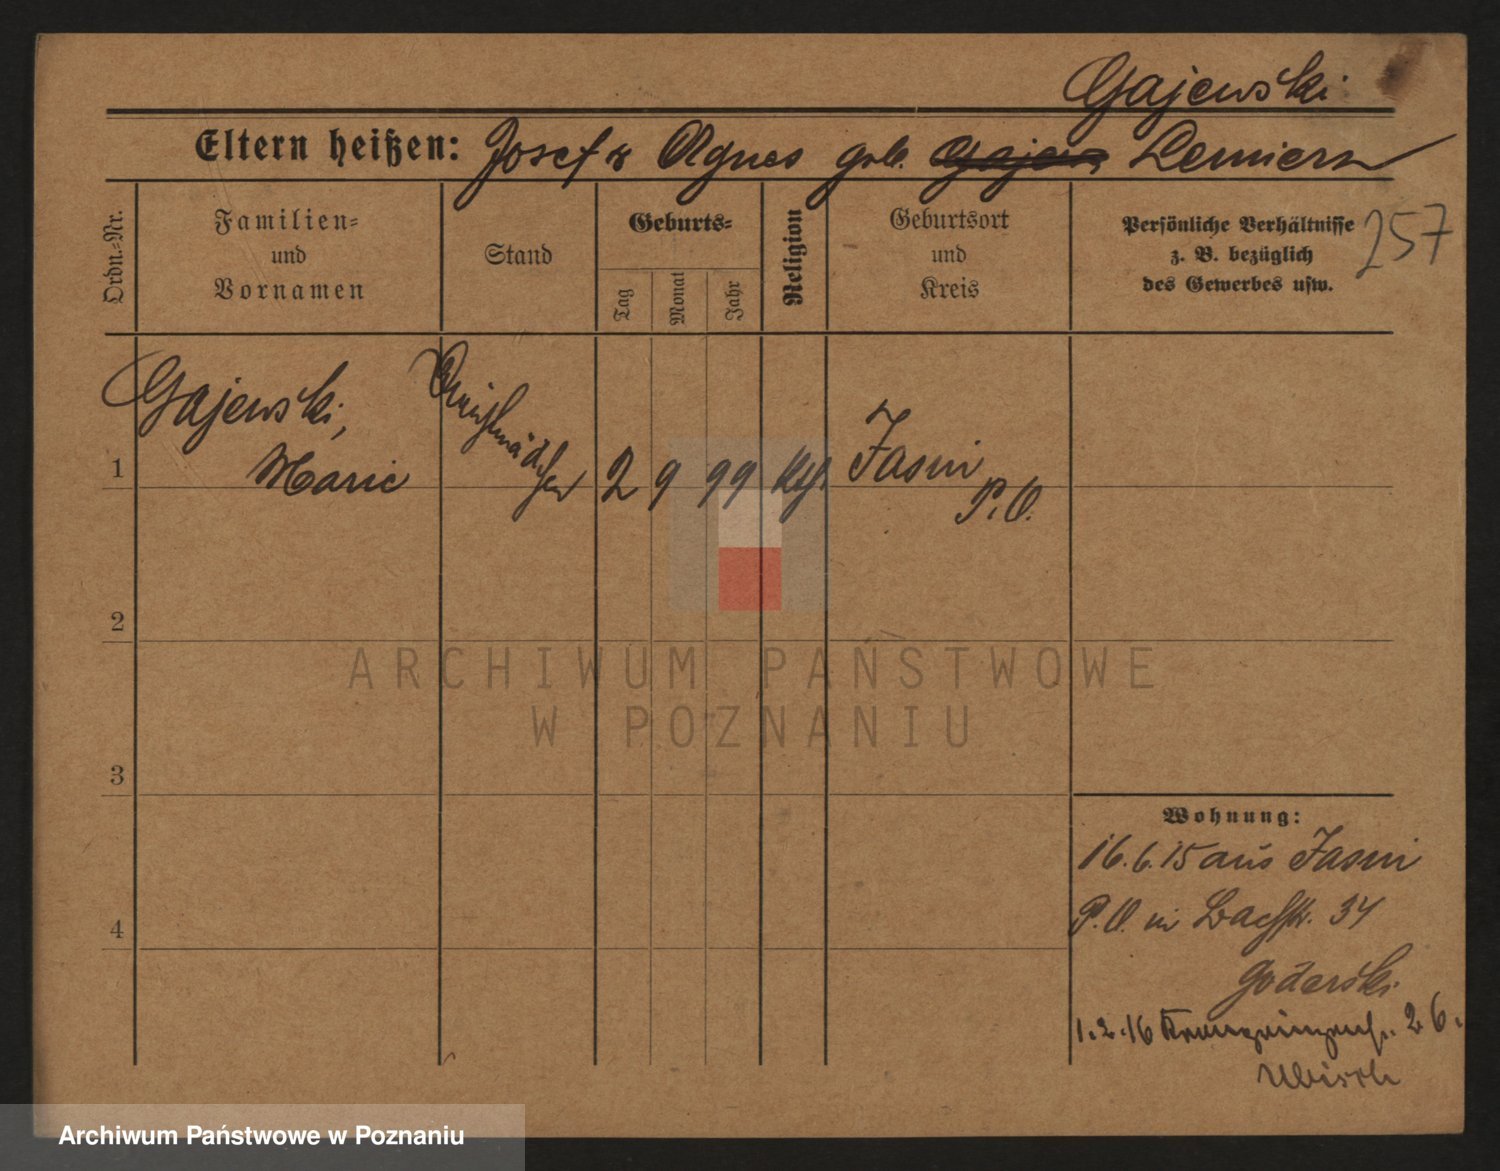 Gajewski
Eltern heißen: Josef & Agnes geb.
257
Ordn.-Nr.
Familien-
und
Vornamen
Stand
Geburts-
Tag
Monat
Jahr
Religion
Geburtsort
und
Kreis
Persönliche Verhältnisse
z. B. bezüglich
des Gewerbes usw.
Gajewski,
Marie
1
2 9 99 kth. Jasin
P. O.
2
ARCHIWUM PAŃSTWOWE
W POZNANIU
3
Wohnung:
16.6.15 aus Jasin
P. O. in Bachstr. 34
Goderski
4
1.2.16 Kronprinzenstr. 26.
Archiwum Państwowe w Poznaniu